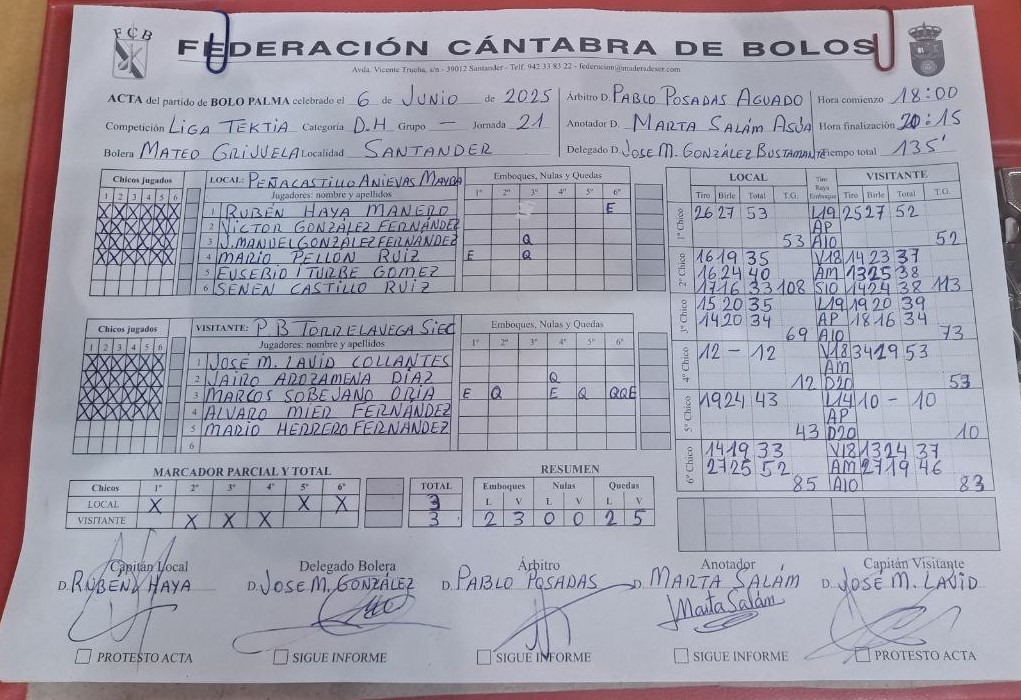 FCB
FEDERACIÓN CÁNTABRA DE BOLOS
Avda. Vicente Trueba, s/n - 39012 Santander - Telf. 942 33 83 22 - federacion@maderadeser.com
ACTA del partido de BOLO PALMA celebrado el 6 de JUNIO de 2025 Árbitro D. PABLO POSADAS AGUADO Hora comienzo 18:00
Competición LIGA TEKTIA Categoría D.H Grupo — Jornada 21 Anotador D. MARTA SALÁM ASÚA Hora finalización 20:15
Bolera MATEO GRIJUELA Localidad SANTANDER Delegado D. JOSE M. GONZÁLEZ BUSTAMANTE Tiempo total 135'
Chicos jugados LOCAL: PEÑACASTILLO ANIEVAS MAYBA Emboques, Nulas y Quedas
1 2 3 4 5 6 Jugadores: nombre y apellidos 1º 2º 3º 4º 5º 6º
X X X X X X 1 RUBÉN HAYA MANERO E
X X X X X X 2 VICTOR GONZÁLEZ FERNÁNDEZ
X X X X X X 3 J. MANUEL GONZÁLEZ FERNÁNDEZ Q
X X X X X X 4 MARIO PELLON RUIZ E Q
5 EUSEBIO ITURBE GOMEZ
6 SENEN CASTILLO RUIZ
Chicos jugados VISITANTE: P.B TORRELAVEGA SIEC Emboques, Nulas y Quedas
1 2 3 4 5 6 Jugadores: nombre y apellidos 1º 2º 3º 4º 5º 6º
X X X X X X 1 JOSÉ M. LAVID COLLANTES
X X X X X X 2 JAIRO AROZAMENA DÍAZ Q
X X X X X X 3 MARCOS SOBEJANO ORIA E Q E Q QQE
X X X X X X 4 ALVARO MIER FERNÁNDEZ
5 MARIO HERRERO FERNÁNDEZ
6
LOCAL Tiro Raya Emboque VISITANTE
Tiro Birle Total T.G. Tiro Birle Total T.G.
1º Chico 26 27 53 L19 25 27 52
AP
53 A10 52
2º Chico 16 19 35 V18 14 23 37
16 24 40 AM 13 25 38
17 16 33 108 S10 14 24 38 113
3º Chico 15 20 35 L19 19 20 39
14 20 34 AP 18 16 34
69 A10 73
4º Chico 12 - 12 V18 34 19 53
AM
12 D20 53
5º Chico 19 24 43 L14 10 - 10
AP
43 D20 10
6º Chico 14 19 33 V18 13 24 37
27 25 52 AM 27 19 46
85 A10 83
MARCADOR PARCIAL Y TOTAL
Chicos 1º 2º 3º 4º 5º 6º TOTAL
LOCAL X X X 3
VISITANTE X X X 3
RESUMEN
Emboques Nulas Quedas
L V L V L V
2 3 0 0 2 5
Capitán Local Delegado Bolera Árbitro Anotador Capitán Visitante
D. RUBÉN HAYA D. JOSE M. GONZÁLEZ D. PABLO POSADAS D. MARTA SALÁM D. JOSÉ M. LAVID
Marta Salám
PROTESTO ACTA SIGUE INFORME SIGUE INFORME SIGUE INFORME PROTESTO ACTA